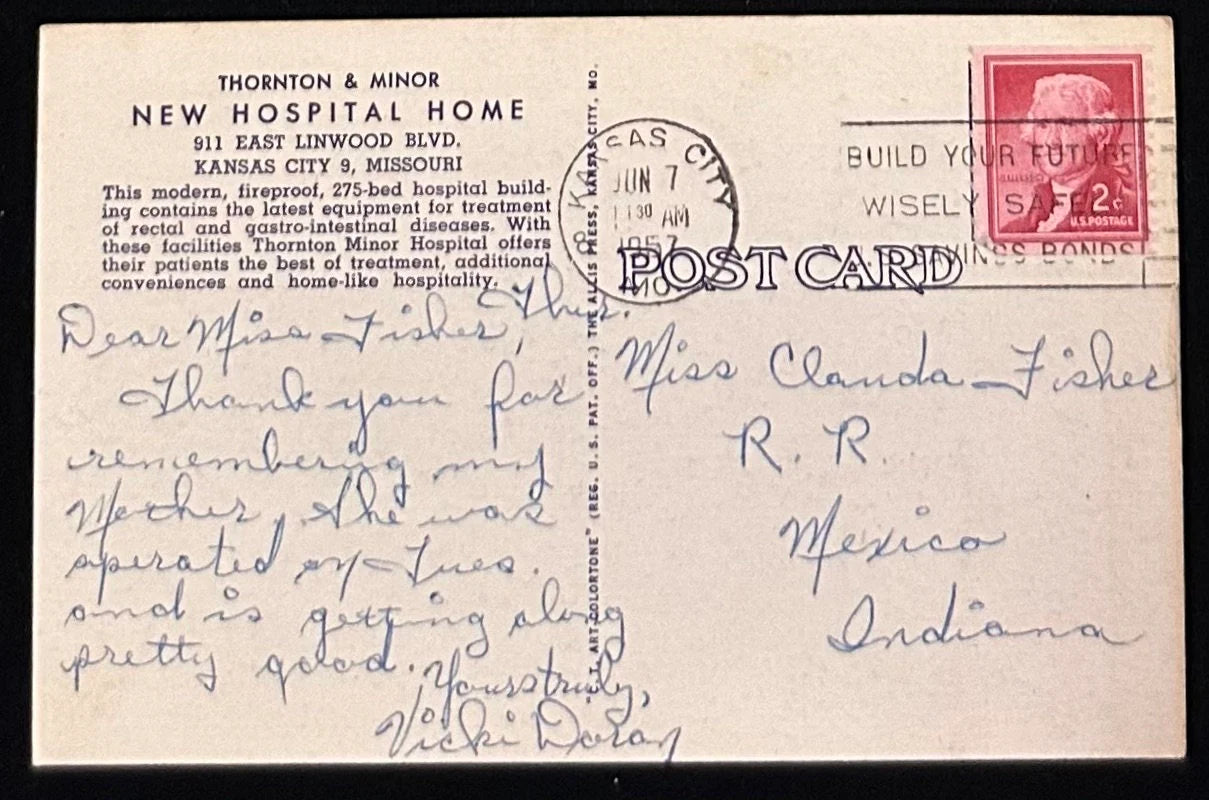 THORNTON & MINOR
NEW HOSPITAL HOME
911 EAST LINWOOD BLVD.
KANSAS CITY 9, MISSOURI
This modern, fireproof, 275-bed hospital build-
ing contains the latest equipment for treatment
of rectal and gastro-intestinal diseases. With
these facilities Thornton Minor Hospital offers
their patients the best of treatment, additional
conveniences and home-like hospitality.
Thur.
Dear Miss Fisher,
Thank you for
remembering my
Mother. She was
operated on Tues.
and is getting along
pretty good.
Yours truly,
Vicki Doran
"C.T. ART-COLORTONE" (REG. U. S. PAT. OFF.) THE ALLIS PRESS, KANSAS CITY, MO.
KANSAS CITY
JUN 7
11 30 AM
1957
MO.
BUILD YOUR FUTURE
WISELY SAFELY
SAVINGS BONDS
2¢
U.S. POSTAGE
POST CARD
Miss Clauda Fisher
R. R.
Mexico
Indiana